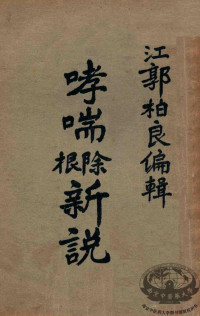 江郭柏良編輯
哮喘除根新説